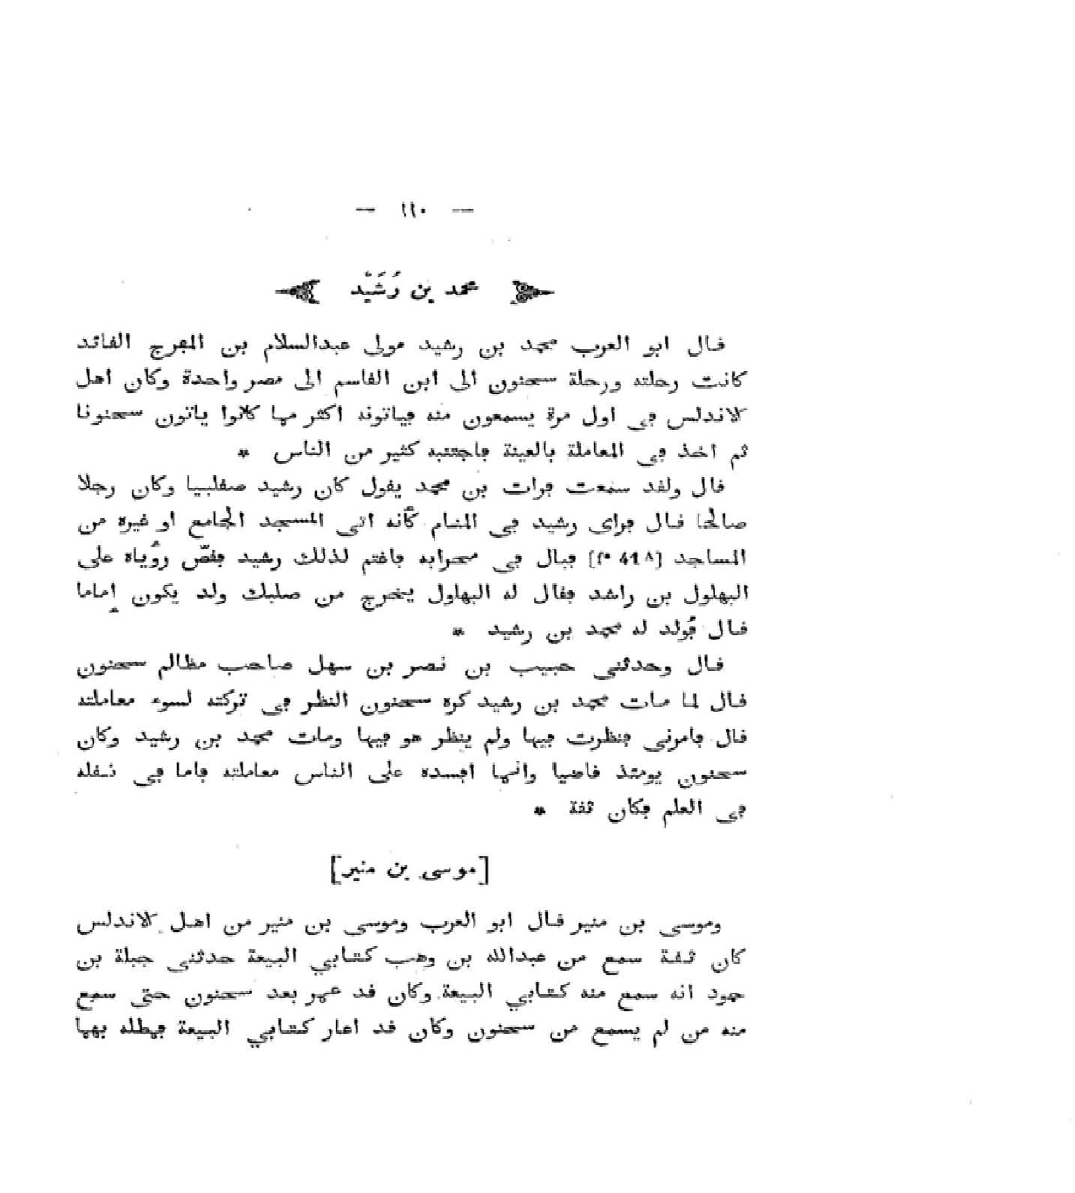 — ١١٠ —
محمد بن رُشَيْد
قال ابو العرب محمد بن رشيد مولى عبدالسلام بن المفرج القائد
كانت رحلته ورحلة سحنون الى ابن القاسم الى مصر واحدة وكان اهل
الاندلس في اول مرة يسمعون منه فياتونه اكثر مما كانوا ياتون سحنونا
ثم اخذ في المعاملة بالعينة فاجتنبه كثير من الناس *
قال ولقد سمعت فرات بن محمد يقول كان رشيد صقلبيا وكان رجلا
صالحا قال فراى رشيد في المنام كأنه اتى المسجد الجامع او غيره من
المساجد [f° 41 ٨] فبال في محرابه فاغتم لذلك رشيد فقصّ رؤياه على
البهلول بن راشد فقال له البهلول يخرج من صلبك ولد يكون إماما
قال فُولد له محمد بن رشيد *
قال وحدثني حبيب بن نصر بن سهل صاحب مظالم سحنون
قال لما مات محمد بن رشيد كره سحنون النظر في تركته لسوء معاملته
قال فامرني فنظرت فيها ولم ينظر هو فيها ومات محمد بن رشيد وكان
سحنون يومئذ قاضيا وانما افسده على الناس معاملته فاما في نقله
في العلم فكان ثقة *
[موسى بن منير]
وموسى بن منير قال ابو العرب وموسى بن منير من اهل الاندلس
كان ثقة سمع من عبدالله بن وهب كتابي البيعة حدثني جبلة بن
حمود انه سمع منه كتابي البيعة وكان قد عمر بعد سحنون حتى سمع
منه من لم يسمع من سحنون وكان قد اعار كتابي البيعة فمطله بهما